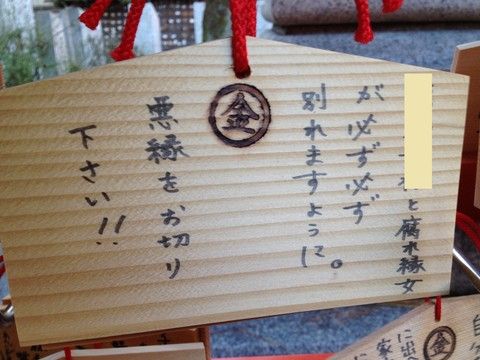 と腐れ縁女
が必ず必ず
別れますように。
金
悪縁をお切り
下さい!!
金